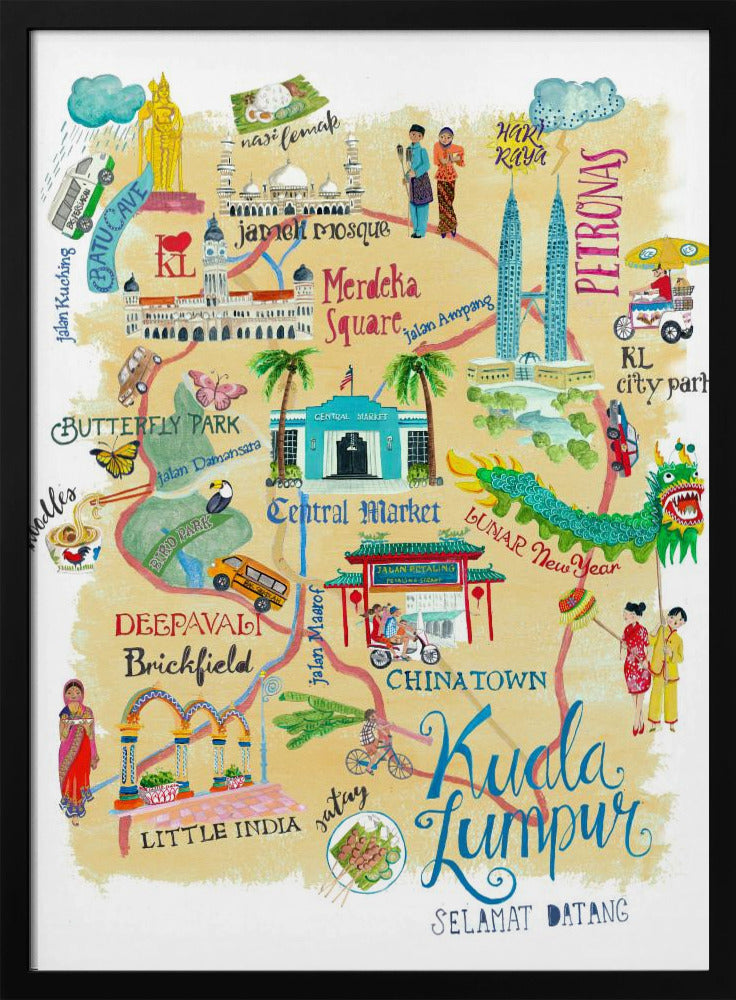 nasi lemak
HARI
RAYA
PETRONAS
BATU CAVE
jalan Kuching
I
KL
jameh mosque
Merdeka
Square
Jalan Ampang
KL
city park
BUTTERFLY PARK
CENTRAL MARKET
jalan Damansara
noodles
BIRD PARK
Central Market
LUNAR New Year
JALAN PETALING
DEEPAVALI
Brickfield
jalan Maarof
CHINATOWN
LITTLE INDIA
satay
Kuala
Lumpur
SELAMAT DATANG